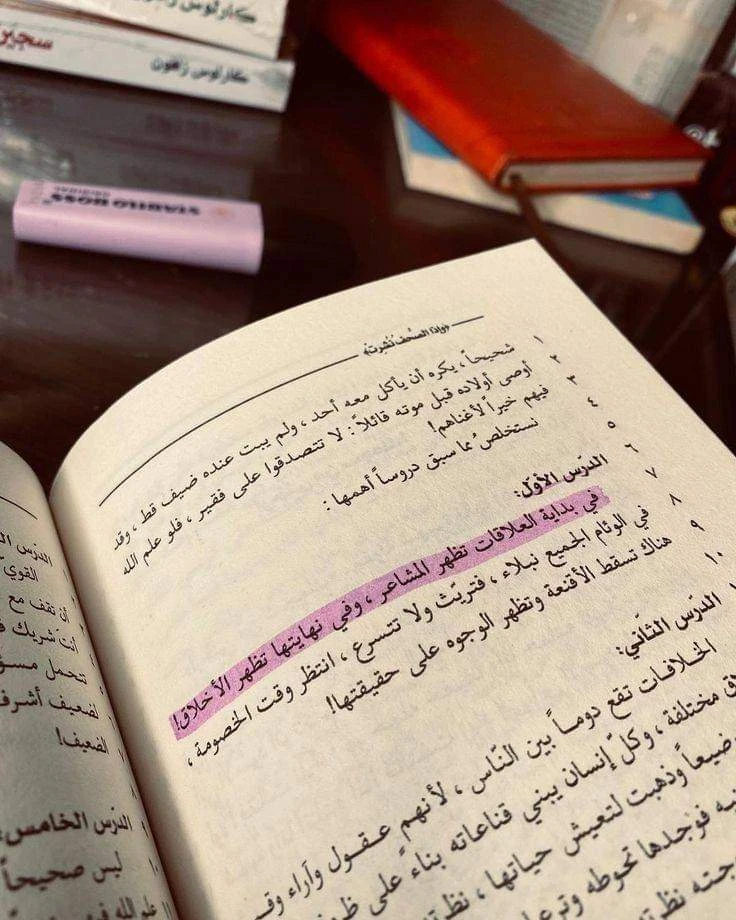 كارلوس زافون
سجين
كارلوس زافون
STABILO BOSS
ORIGINAL
﴿وإذا الصّحف نُشِرت﴾
١ شحيحاً، يكره أن يأكل معه أحد، ولم يبت عنده ضيف قط، وقد
٢ أوصى أولاده قبل موته قائلاً: لا تتصدقوا على فقير، فلو علم الله
٣ فيهم خيراً لأغناهم!
٤ نستخلصُ مما سبق دروساً أهمها:
٥
٦ الدّرس الأوّل:
٧ في بداية العلاقات تظهر المشاعر، وفي نهايتها تظهر الأخلاق!
٨ في الوئام الجميع نبلاء، فتريّث ولا تتسرع، انتظر وقت الخصومة،
٩ هناك تسقط الأقنعة وتظهر الوجوه على حقيقتها!
١٠
الدّرس الثّاني:
الخلافات تقع دوماً بين النّاس، لأنهم عقول وآراء
مختلفة، وكلّ إنسان يبني قناعاته بناءً على
وذهبت لتعيش حياتها،
فوجدها تحوطه
الدّرس
القوي
أن تقف مع
أنت شريك
تتحمل
لضعيف أشرف
الضعيف!
الدّرس الخامس
ليس صحيحاً
الله فيهم